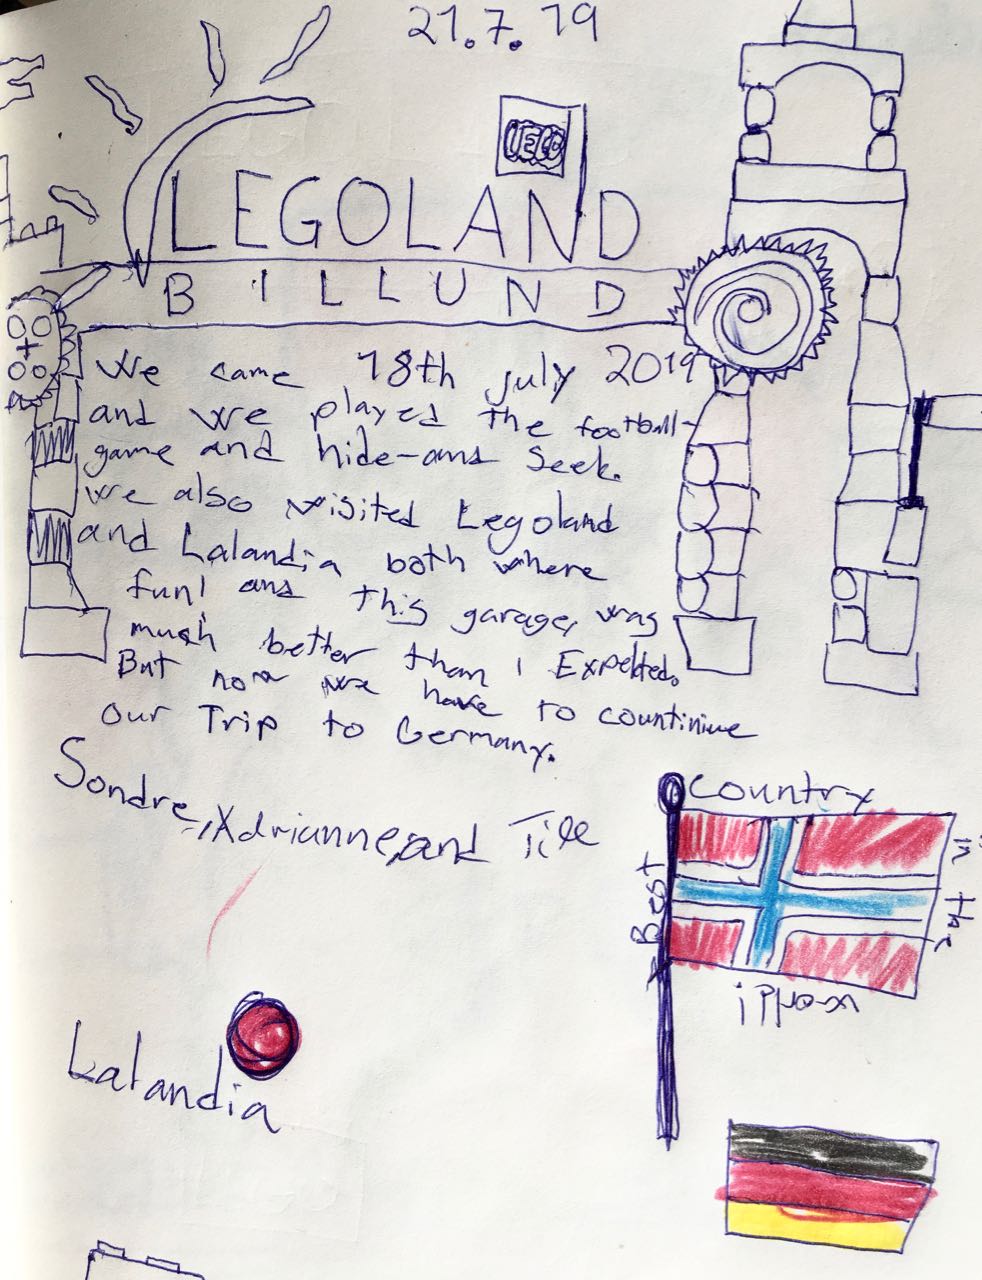 21.7.19
LEGO
LEGOLAND
BILLUND
We came 18th july 2019
and we played the football-
game and hide-and seek.
we also visited Legoland
and Lalandia both where
fun! and this garage, was
much better than i Expekted.
But now we have to countiniue
our Trip to Germany.
Sondre, Adrianne, and Till
Best
country
in
the
Lalandia